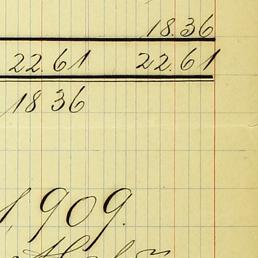 18.36
22.61 22.61
18 36
1,909.